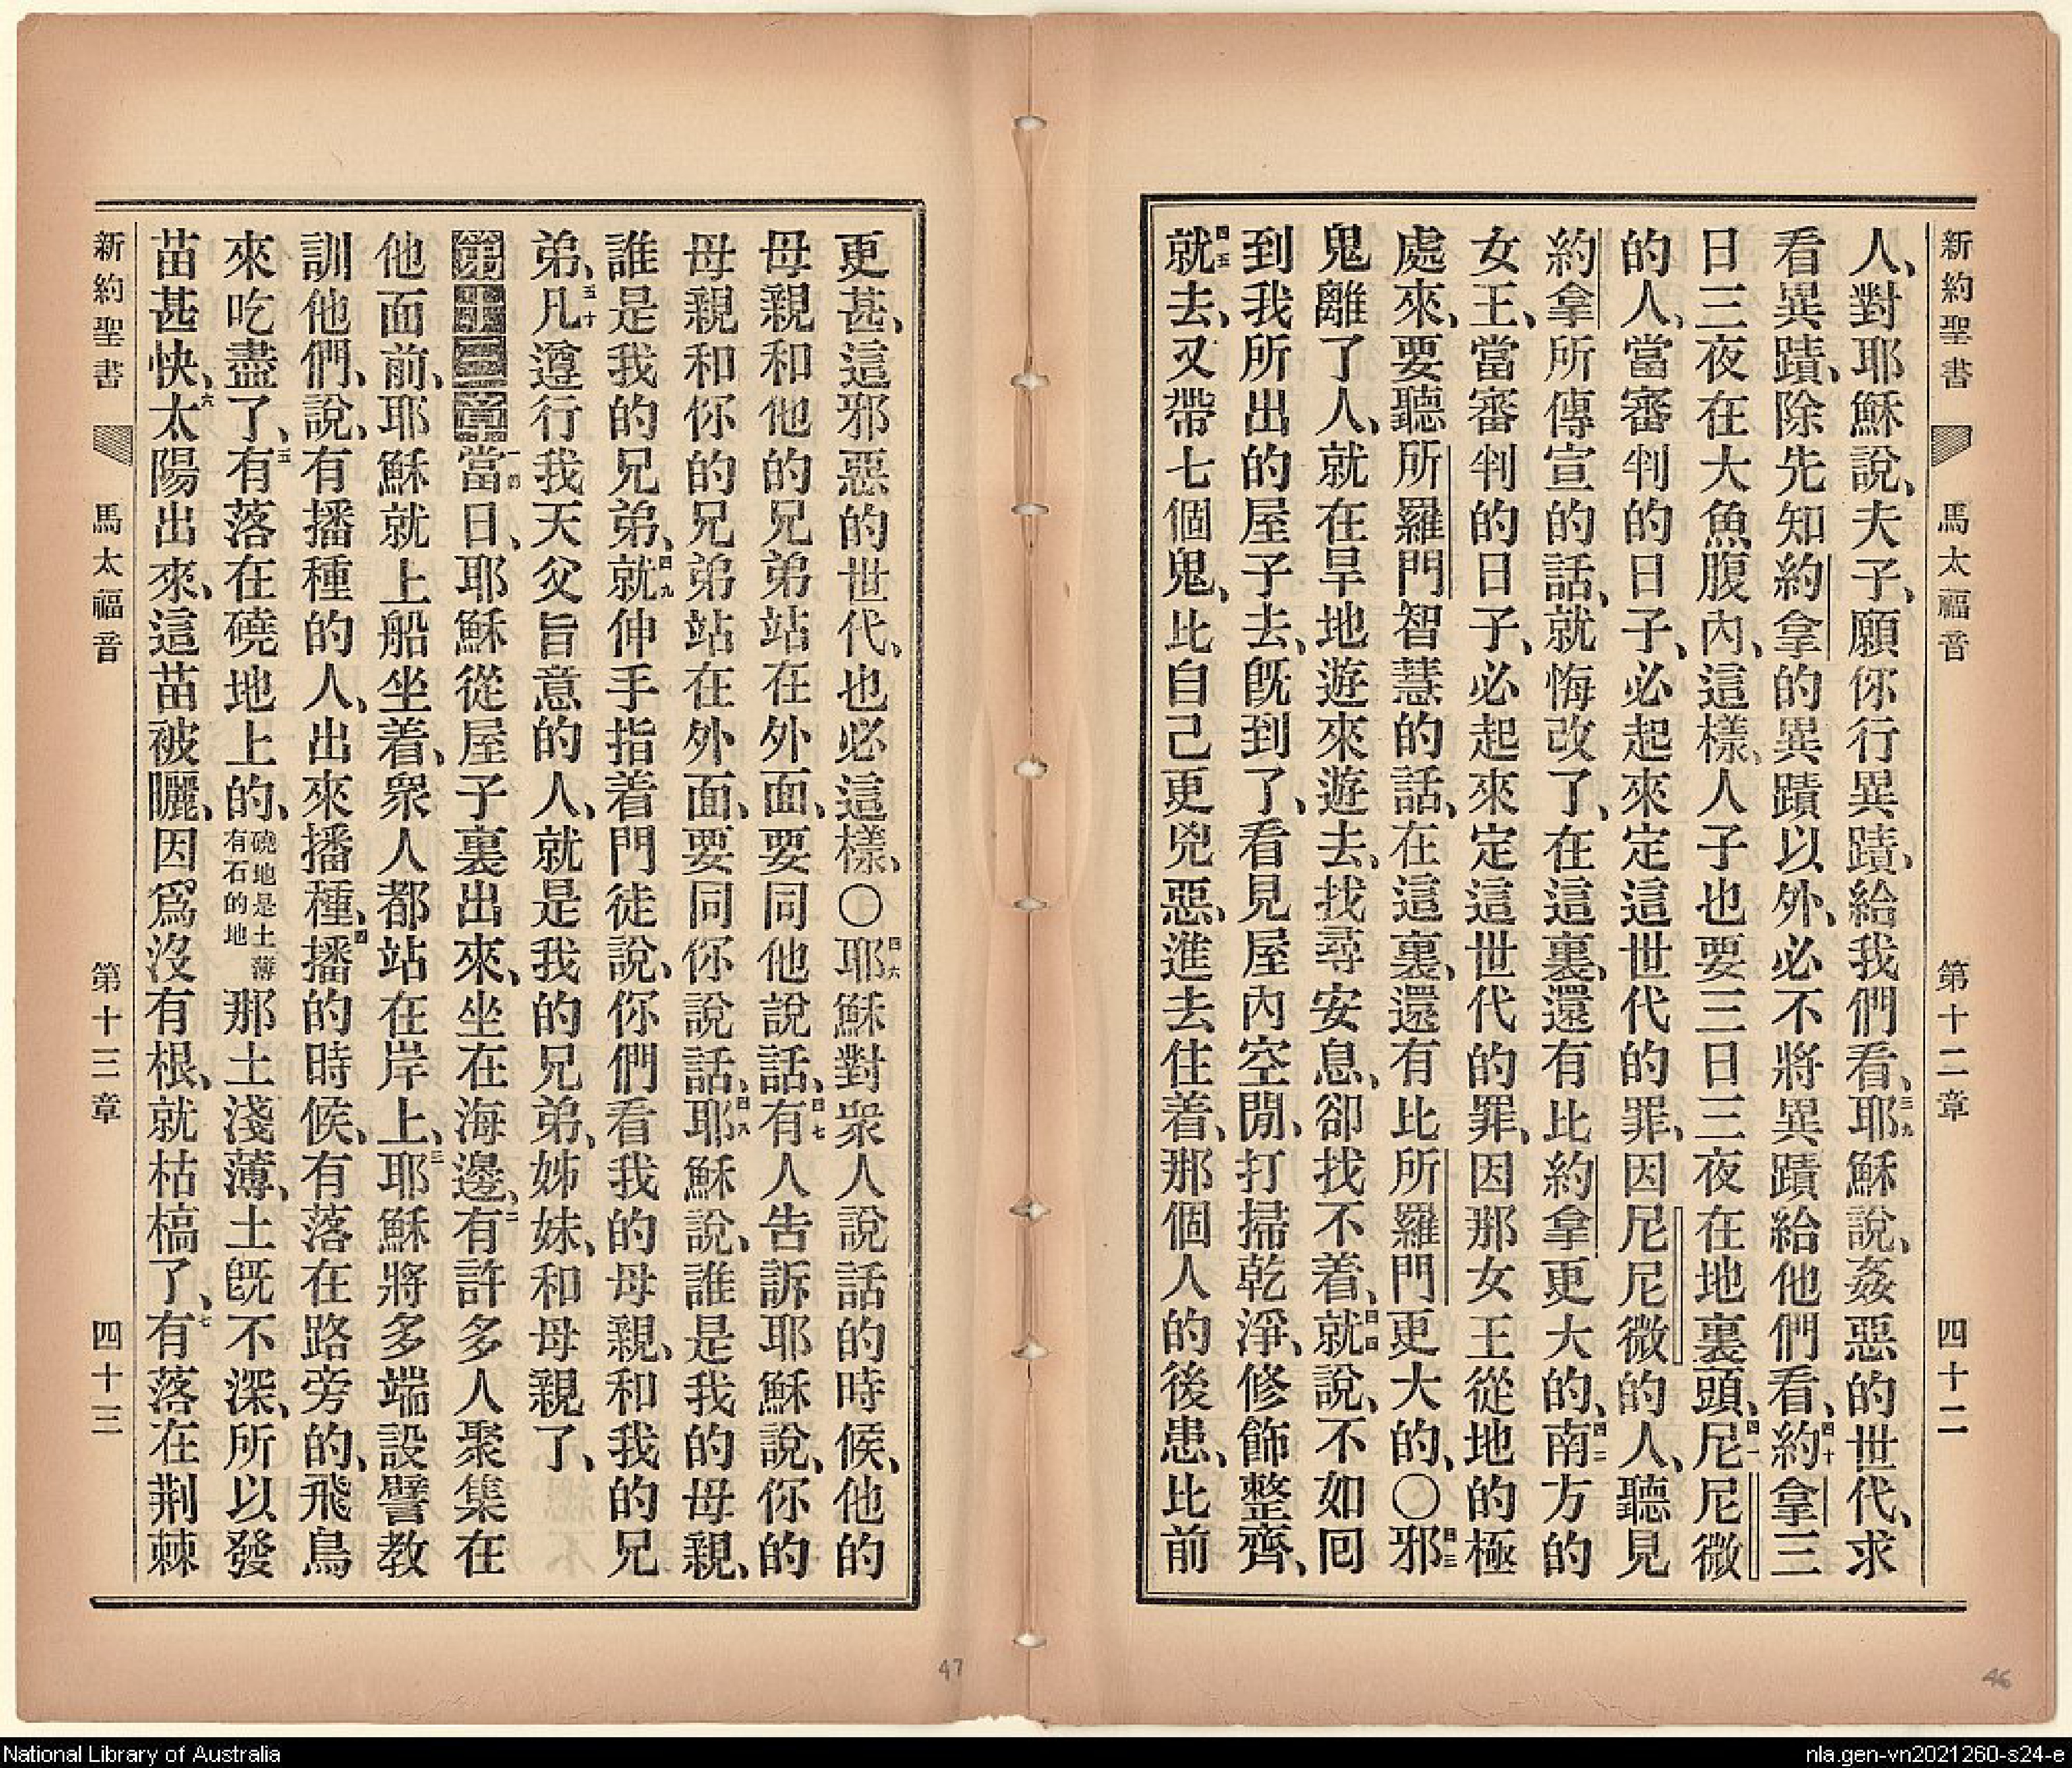 新約聖書 馬太福音 第十二章 四十二
人、對耶穌說、夫子、願你行異蹟、給我們看、三九耶穌說、姦惡的世代、求
看異蹟、除先知約拿的異蹟以外、必不將異蹟給他們看、四十約拿三
日三夜在大魚腹內、這樣、人子也要三日三夜在地裏頭、四一尼尼微
的人、當審判的日子、必起來定這世代的罪、因尼尼微的人、聽見
約拿所傳宣的話、就悔改了、在這裏、還有比約拿更大的、四二南方的
女王、當審判的日子、必起來定這世代的罪、因那女王從地的極
處來、要聽所羅門智慧的話、在這裏、還有比所羅門更大的、〇四三邪
鬼離了人、就在旱地遊來遊去、找尋安息、卻找不着、四四就說、不如囘
到我所出的屋子去、旣到了、看見屋內空閒、打掃乾淨、修飾整齊、
四五就去、又帶七個鬼、比自己更兇惡、進去住着、那個人的後患、比前
更甚、這邪惡的世代、也必這樣、〇四六耶穌對衆人說話的時候、他的
母親和他的兄弟站在外面、要同他說話、四七有人告訴耶穌說、你的
母親和你的兄弟站在外面、要同你說話、四八耶穌說、誰是我的母親、
誰是我的兄弟、四九就伸手指着門徒說、你們看我的母親、和我的兄
弟、五十凡遵行我天父旨意的人、就是我的兄弟、姊妹、和母親了、
第十三章一當的日、耶穌從屋子裏出來、坐在海邊、二有許多人聚集在
他面前、耶穌就上船坐着、衆人都站在岸上、三耶穌將多端設譬教
訓他們、說、有播種的人、出來播種、四播的時候、有落在路旁的、飛鳥
來吃盡了、五有落在磽地上的、磽地是土薄有石的地那土淺薄、土旣不深、所以發
苗甚快、六太陽出來、這苗被曬、因爲沒有根、就枯槁了、七有落在荆棘
新約聖書 馬太福音 第十三章 四十三
47
46
National Library of Australia
nla.gen-vn2021260-s24-e